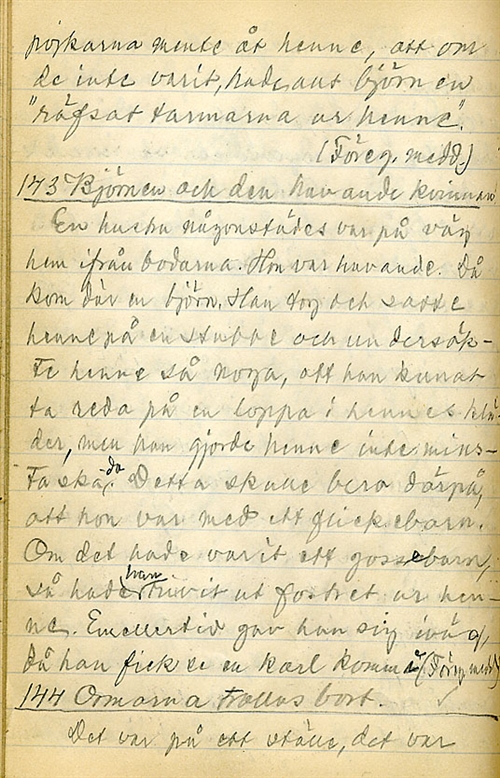 pojkarna mente åt henne, att om
de inte varit, hade ant björnen
"räfsat tarmarna ur henne".
(Föreg. medd.)
143 Björnen och den havande kvinnan
En hustru någonstädes var på väg
hem ifrån bodarna. Hon var havande. Då
kom där en björn. Han tog och satte
henne på en stubbe och undersök-
te henne så noga, att han kunnat
ta reda på en loppa i hennes klä-
der, men han gjorde henne inte mins-
ta skada. Detta skulle bero därpå,
att hon var med ett flickebarn.
Om det hade varit ett gossebarn,
så hade han rivit ut fostret ur hen-
ne. Emellertid gav han sig iväg,
då han fick se en karl komma. (Föreg. medd.)
144 Ormarna trollas bort.
Det var på ett ställe, det var